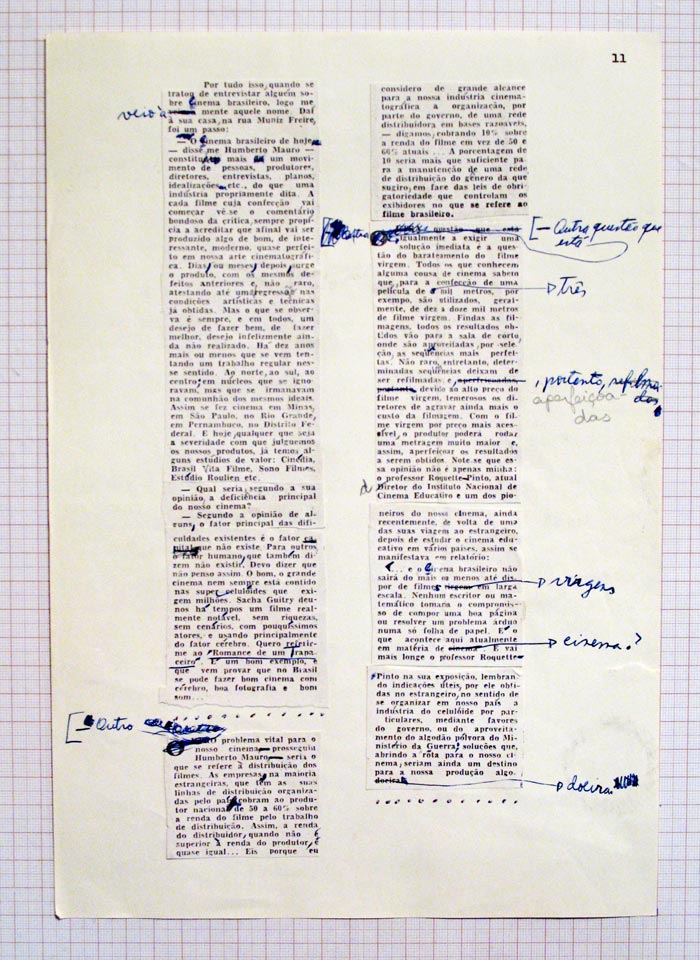 11
Por tudo isso, quando se
tratou de entrevistar alguém so-
bre cinema brasileiro, logo me
veio à mente aquele nome. Daí
à sua casa, na rua Muniz Freire,
foi um passo:
— O Cinema brasileiro de hoje
— disse-me Humberto Mauro —
constitue mais de um movi-
mento de pessoas, produtores,
diretores, entrevistas, planos,
idealizações etc., do que uma
indústria propriamente dita. A
cada filme cuja confecção vai
começar vê-se o comentário
bondoso da crítica, sempre propí-
cia a acreditar que afinal vai ser
produzido algo de bom, de inte-
ressante, moderno, quase perfei-
to em nossa arte cinematográfi-
ca. Dias ou meses depois surge
o produto, com os mesmos de-
feitos anteriores e, não raro,
atestando até uma regressão nas
condições artísticas e técnicas
já obtidas. Mas o que se obser-
va é sempre, e em todos, um
desejo de fazer bem, de fazer
melhor, desejo infelizmente ain-
da não realizado. Há dez anos
mais ou menos que se vem ten-
tando um trabalho regular nes-
se sentido. Ao norte, ao sul, ao
centro, em núcleos que se igno-
ravam, mas que se irmanavam
na comunhão dos mesmos ideais.
Assim se fez cinema em Minas,
em São Paulo, no Rio Grande,
em Pernambuco, no Distrito Fe-
deral. E hoje, qualquer que seja
a severidade com que julguemos
os nossos produtos, já temos al-
guns estúdios de valor: Cinédia,
Brasil Vita Filme, Sono Filmes,
Estúdio Roulien etc.
— Qual seria, segundo a sua
opinião, a deficiência principal
do nosso cinema?
— Segundo a opinião de al-
guns, o fator principal das difi-
culdades existentes é o fator ca-
pital que não existe. Para outros
o fator humano, que também di-
zem não existir. Devo dizer que
não penso assim. O bom, o grande
cinema nem sempre está contido
nas super-celulóides que exi-
gem milhões. Sacha Guitry deu-
nos há tempos um filme real-
mente notável, sem riquezas,
sem cenários, com pouquíssimos
atores, e usando principalmente
do fator cérebro. Quero referir-
me ao "Romance de um Trapa-
ceiro". É um bom exemplo, e
que vem provar que no Brasil
se pode fazer bom cinema com
cérebro, boa fotografia e bom
som...
[— Outro
problema vital para o
nosso cinema — prosseguiu
Humberto Mauro — seria o
que se refere à distribuição dos
filmes. As empresas, na maioria
estrangeiras, que têm as suas
linhas de distribuição organiza-
das pelo país, cobram ao produ-
tor nacional de 50 a 60% sobre
a renda do filme pelo trabalho
de distribuição. Assim, a renda
do distribuidor, quando não é
superior à renda do produtor, é
quase igual... Eis porque eu
considero de grande alcance
para a nossa indústria cinema-
tográfica a organização, por
parte do governo, de uma rede
distribuidora em bases razoáveis,
— digamos, cobrando 10% sobre
a renda do filme em vez de 50 e
60% atuais... A porcentagem de
10 seria mais que suficiente pa-
ra a manutenção de uma rede
de distribuição do gênero da que
sugiro, em face das leis de obri-
gatoriedade que controlam os
exibidores no que se refere ao
filme brasileiro.
questão que está
[— Outra questão que
está
igualmente a exigir uma
solução imediata é a ques-
tão do barateamento do filme
virgem. Todos os que conhecem
alguma cousa de cinema sabem
que para a confecção de uma
película de mil metros, por
três
exemplo, são utilizados, geral-
mente, de dez a doze mil metros
de filme virgem. Findas as fil-
magens, todos os resultados ob-
tidos vão para a sala de corte,
onde são aproveitadas, por sele-
ção, as seqüências mais perfei-
tas. Não raro, entretanto, deter-
minadas seqüências deixam de
ser refilmadas e, aperfeiçoadas,
portanto, devido ao alto preço do
, portanto, refilma-
das
aperfeiçoa-
das
filme virgem, temerosos os di-
retores de agravar ainda mais o
custo da filmagem. Com o fil-
me virgem por preço mais aces-
sível, o produtor poderá rodar
uma metragem muito maior e,
assim, aperfeiçoar os resultados
a serem obtidos. Note-se que es-
sa opinião não é apenas minha:
o professor Roquette-Pinto, atual
d
Diretor do Instituto Nacional de
Cinema Educativo e um dos pio-
neiros do nosso cinema, ainda
recentemente, de volta de uma
das suas viagens ao estrangeiro,
depois de estudar o cinema edu-
cativo em vários países, assim se
manifestava em relatório:
"... e o Cinema brasileiro não
sairá do mais ou menos até dis-
por de filmes virgens em larga
virgens
escala. Nenhum escritor ou ma-
temático tomaria o compromis-
so de compor uma boa página
ou resolver um problema árduo
numa só folha de papel. E o
que acontece aqui atualmente
em matéria de cinema. E vai
cinema."
mais longe o professor Roquette-
Pinto na sua exposição, lembran-
do indicações úteis, por ele obti-
das no estrangeiro, no sentido de
se organizar em nosso país a
indústria do celulóide por par-
ticulares, mediante favores
do governo, ou do aproveita-
mento do algodão pólvora do Mi-
nistério da Guerra, soluções que,
abrindo a rota para o nosso ci-
nema, seriam ainda um destino
para a nossa produção algo-
doeira.
doeira.